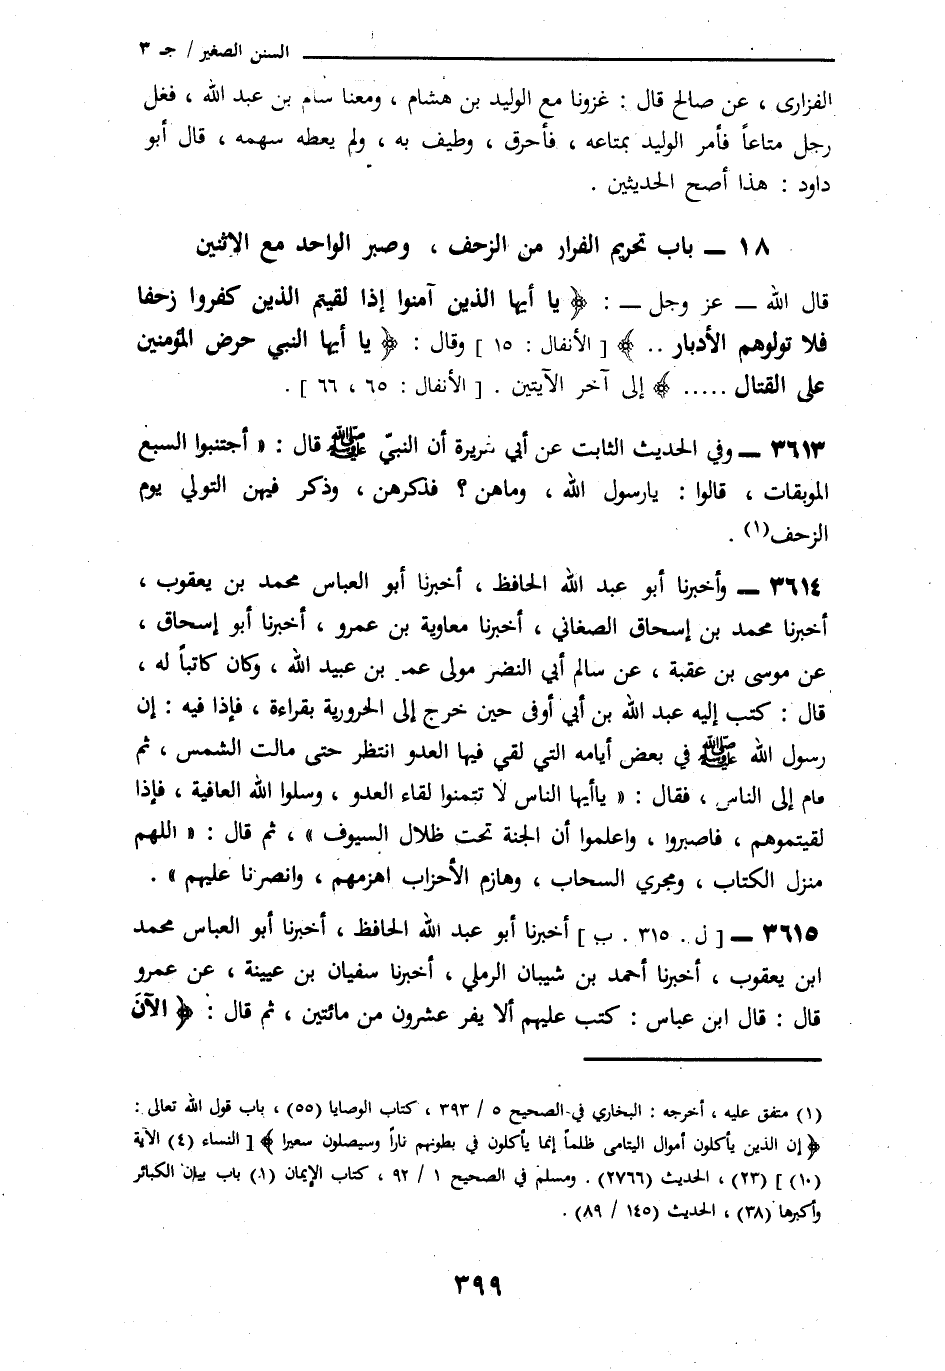 السنن الصغير / جـ ٣
الفزارى ، عن صالح قال : غزونا مع الوليد بن هشام ، ومعنا سالم بن عبد الله ، فغل
رجل متاعاً فأمر الوليد بمتاعه ، فأحرق ، وطيف به ، ولم يعطه سهمه ، قال أبو
داود : هذا أصح الحديثين .
١٨ ــ باب تحريم الفرار من الزحف ، وصبر الواحد مع الاثنين
قال الله ــ عز وجل ــ : ﴿ يا أيها الذين آمنوا إذا لقيتم الذين كفروا زحفا
فلا تولوهم الأدبار .. ﴾ [ الأنفال : ١٥ ] وقال : ﴿ يا أيها النبي حرض المؤمنين
على القتال ..... ﴾ إلى آخر الآيتين . [ الأنفال : ٦٥ ، ٦٦ ] .
٣٦١٣ ــ وفي الحديث الثابت عن أبي هريرة أن النبيّ ﷺ قال : « أجتنبوا السبع
الموبقات ، قالوا : يارسول الله ، وماهن ؟ فذكرهن ، وذكر فيهن التولي يوم
الزحف(١) .
٣٦١٤ ــ وأخبرنا أبو عبد الله الحافظ ، أخبرنا أبو العباس محمد بن يعقوب ،
أخبرنا محمد بن إسحاق الصغاني ، أخبرنا معاوية بن عمرو ، أخبرنا أبو إسحاق ،
عن موسى بن عقبة ، عن سالم أبي النضر مولى عمر بن عبيد الله ، وكان كاتباً له ،
قال : كتب إليه عبد الله بن أبي أوفى حين خرج إلى الحرورية بقراءة ، فإذا فيه : إن
رسول الله ﷺ في بعض أيامه التي لقي فيها العدو انتظر حتى مالت الشمس ، ثم
قام إلى الناس ، فقال : « ياأيها الناس لا تتمنوا لقاء العدو ، وسلوا الله العافية ، فإذا
لقيتموهم ، فاصبروا ، واعلموا أن الجنة تحت ظلال السيوف » ، ثم قال : « اللهم
منزل الكتاب ، ومجري السحاب ، وهازم الأحزاب اهزمهم ، وانصرنا عليهم » .
٣٦١٥ ــ [ ل . ٣١٥ . ب ] أخبرنا أبو عبد الله الحافظ ، أخبرنا أبو العباس محمد
ابن يعقوب ، أخبرنا أحمد بن شيبان الرملي ، أخبرنا سفيان بن عيينة ، عن عمرو
قال : قال ابن عباس : كتب عليهم ألا يفر عشرون من مائتين ، ثم قال : ﴿ الآنَ
(١) متفق عليه ، أخرجه : البخاري في الصحيح ٥ / ٣٩٣ ، كتاب الوصايا (٥٥) ، باب قول الله تعالى :
﴿ إن الذين يأكلون أموال اليتامى ظلماً إنما يأكلون في بطونهم ناراً وسيصلون سعيرا ﴾ [ النساء (٤) الآية
(١٠) ] (٢٣) ، الحديث (٢٧٦٦) . ومسلم في الصحيح ١ / ٩٢ ، كتاب الإيمان (١) باب بيان الكبائر
وأكبرها (٣٨) ، الحديث (١٤٥ / ٨٩) .
٣٩٩